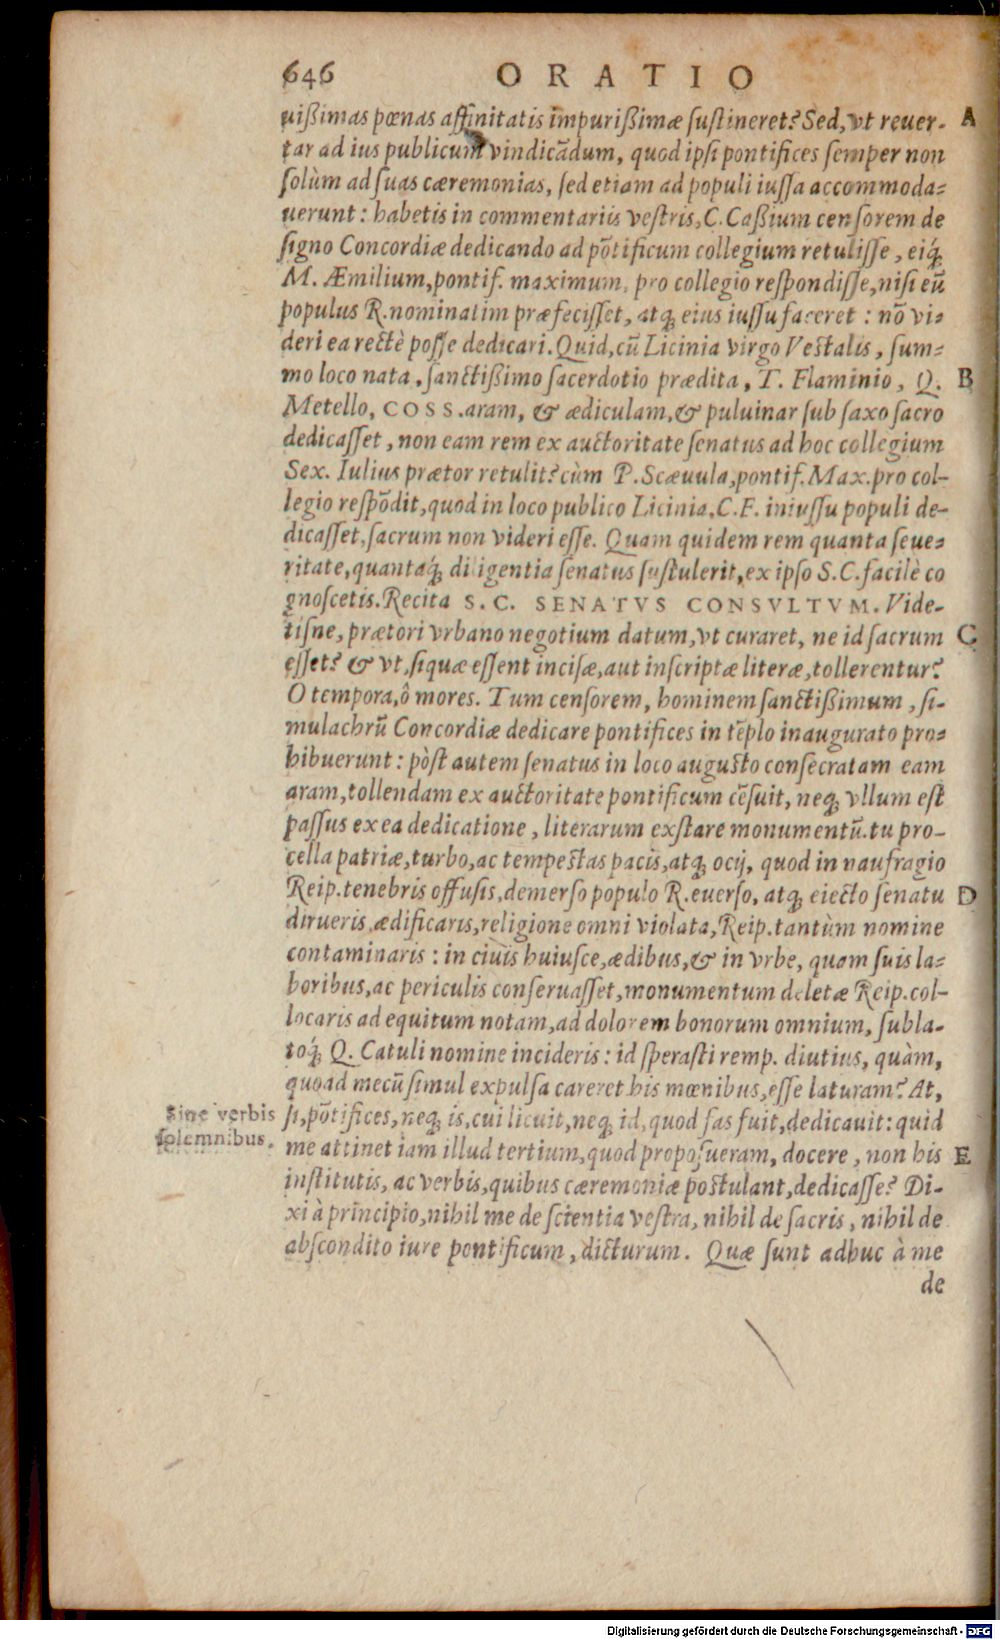 646 ORATIO
uißimas pœnas affinitatis impurißimæ ſuſtineret? Sed, vt reuer- A
tar ad ius publicum vindicādum, quod ipſi pontifices ſemper non
ſolùm ad ſuas cæremonias, ſed etiam ad populi iuſſa accommoda=
uerunt: habetis in commentariis veſtris, C. Caßium cenſorem de
ſigno Concordiæ dedicando ad pōtificum collegium retuliſſe, eiq́;
M. Æmilium, pontif. maximum, pro collegio reſpondiſſe, niſi eū
populus R. nominatim præfeciſſet, atq; eius iuſſu faceret: nō vi=
deri ea rectè poſſe dedicari. Quid, cū Licinia virgo Veſtalis, ſum=
mo loco nata, ſanctißimo ſacerdotio prædita, T. Flaminio, Q. B
Metello, COSS. aram, & ædiculam, & puluinar ſub ſaxo ſacro
dedicaſſet, non eam rem ex auctoritate ſenatus ad hoc collegium
Sex. Iulius prætor retulit? cùm P. Scæuula, pontif. Max. pro col-
legio reſpōdit, quod in loco publico Licinia, C. F. iniuſſu populi de-
dicaſſet, ſacrum non videri eſſe. Quam quidem rem quanta ſeue=
ritate, quantaq́; diligentia ſenatus ſuſtulerit, ex ipſo S.C. facilè co
gnoſcetis. Recita S.C. SENATVS CONSVLTVM. Vide-
tiſne, prætori vrbano negotium datum, vt curaret, ne id ſacrum C
eſſet? & vt, ſiquæ eſſent inciſæ, aut inſcriptæ literæ, tollerentur?
O tempora, ô mores. Tum cenſorem, hominem ſanctißimum, ſi-
mulachrū Concordiæ dedicare pontifices in tēplo inaugurato pro=
hibuerunt: pòſt autem ſenatus in loco auguſto conſecratam eam
aram, tollendam ex auctoritate pontificum cēſuit, neq; vllum eſt
paſſus ex ea dedicatione, literarum exſtare monumentū. tu pro-
cella patriæ, turbo, ac tempeſtas pacis, atq; ocij, quod in naufragio
Reip. tenebris offuſis, demerſo populo R. euerſo, atq; eiecto ſenatu D
dirueris, ædificaris, religione omni violata, Reip. tantùm nomine
contaminaris: in ciuis huiuſce, ædibus, & in vrbe, quam ſuis la=
boribus, ac periculis conſeruaſſet, monumentum deletæ Reip. col-
locaris ad equitum notam, ad dolorem bonorum omnium, ſubla-
toq́; Q. Catuli nomine incideris: id ſperaſti remp. diutius, quàm,
quoad mecū ſimul expulſa careret his mœnibus, eſſe laturam? At,
Sine verbis ſi, pōtifices, neq; is, cui licuit, neq; id, quod fas fuit, dedicauit: quid
ſolemnibus. me attinet iam illud tertium, quod propoſueram, docere, non his E
inſtitutis, ac verbis, quibus cæremoniæ poſtulant, dedicaſſe? Di-
xi à principio, nihil me de ſcientia veſtra, nihil de ſacris, nihil de
abſcondito iure pontificum, dicturum. Quæ ſunt adhuc à me
de
Digitalisierung gefördert durch die Deutsche Forschungsgemeinschaft - DFG